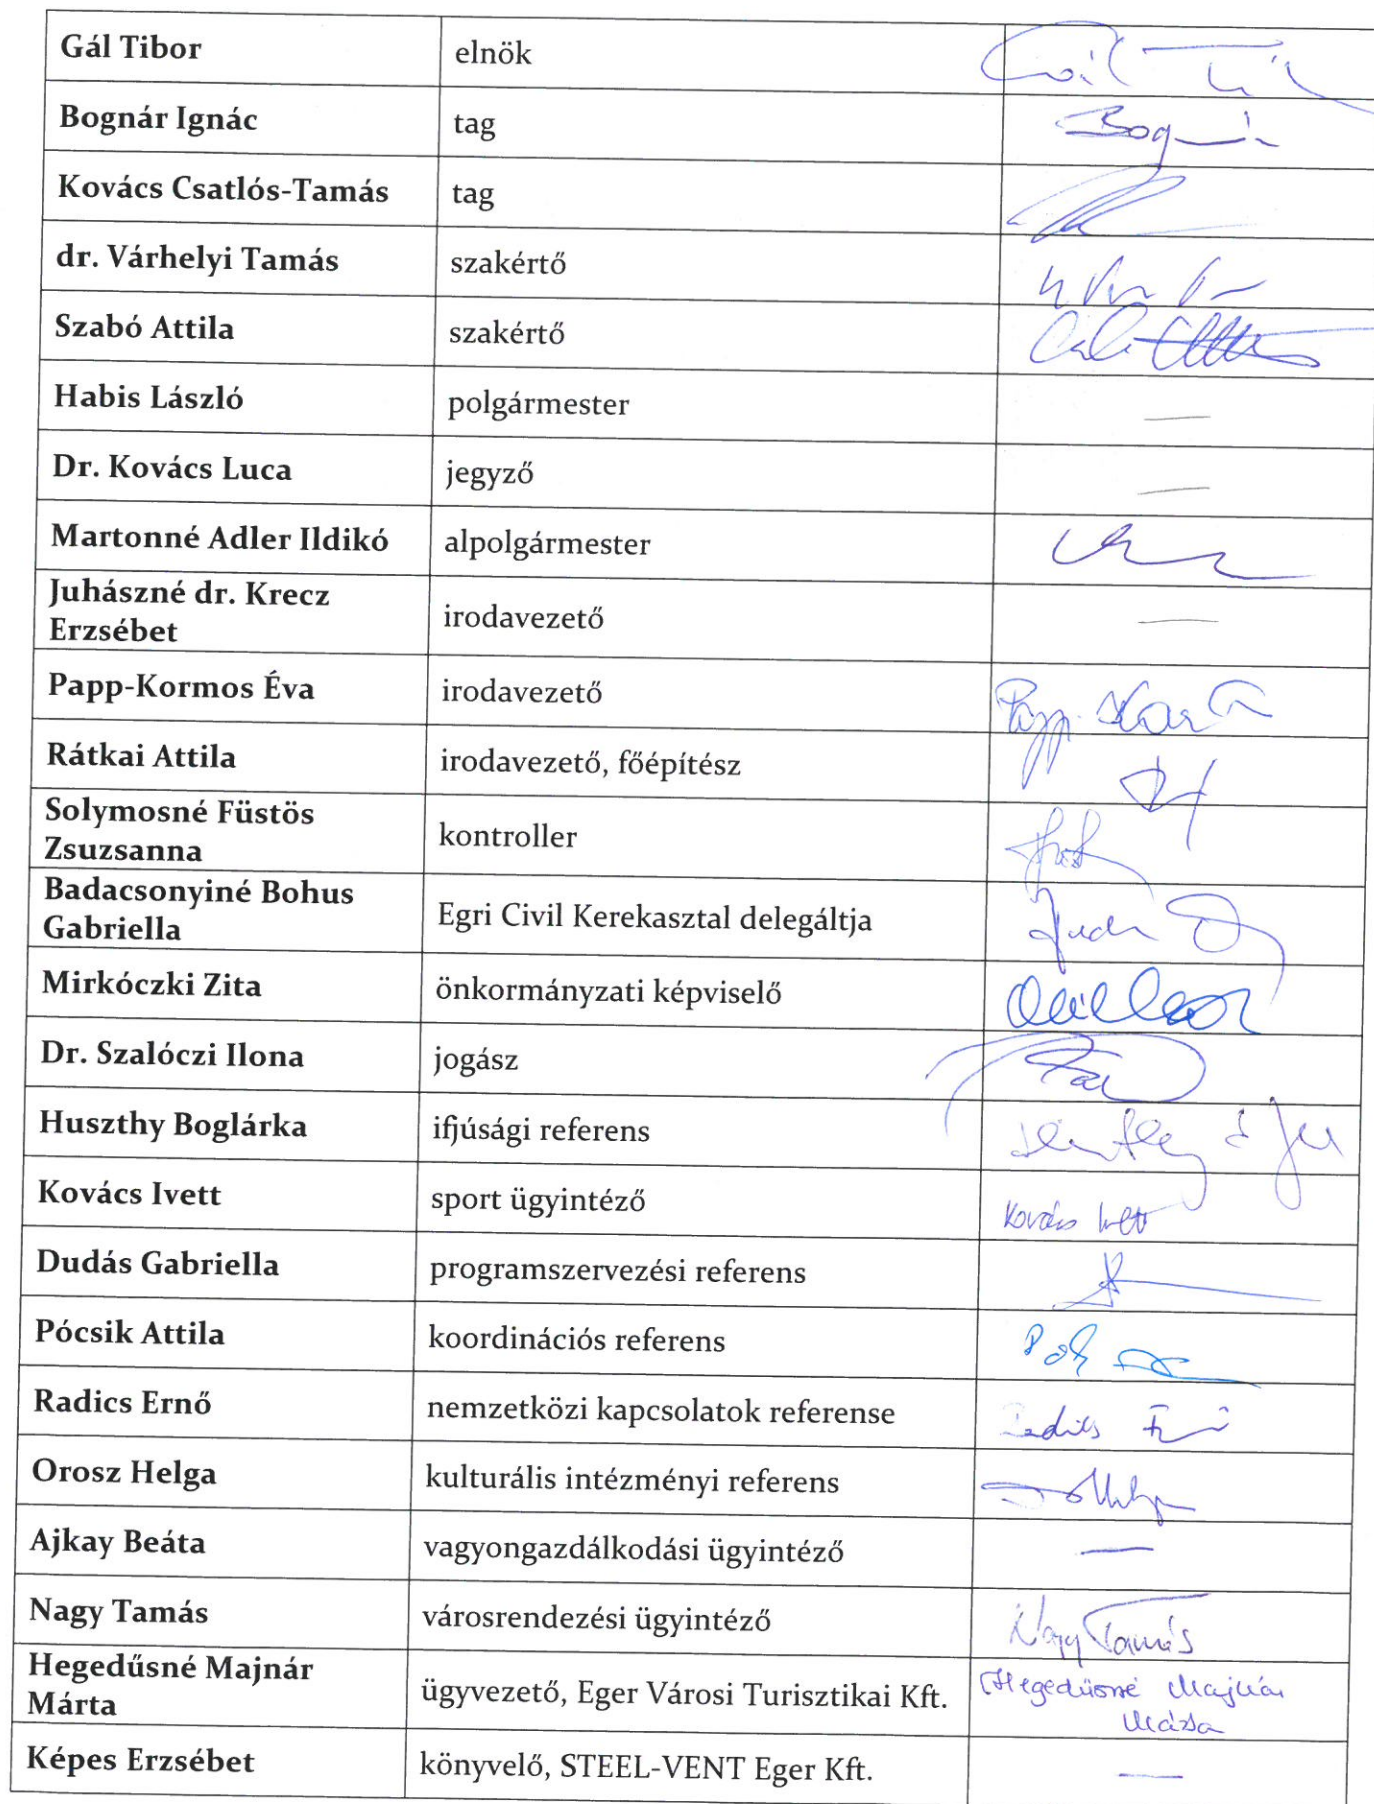 Gál Tibor elnök
Bognár Ignác tag Bognár
Kovács Csatlós-Tamás tag
dr. Várhelyi Tamás szakértő
Szabó Attila szakértő
Habis László polgármester —
Dr. Kovács Luca jegyző —
Martonné Adler Ildikó alpolgármester
Juhászné dr. Krecz
Erzsébet irodavezető —
Papp-Kormos Éva irodavezető
Rátkai Attila irodavezető, főépítész
Solymosné Füstös
Zsuzsanna kontroller
Badacsonyiné Bohus
Gabriella Egri Civil Kerekasztal delegáltja
Mirkóczki Zita önkormányzati képviselő
Dr. Szalóczi Ilona jogász
Huszthy Boglárka ifjúsági referens
Kovács Ivett sport ügyintéző Kovács Ivett
Dudás Gabriella programszervezési referens
Pócsik Attila koordinációs referens
Radics Ernő nemzetközi kapcsolatok referense Radics Ernő
Orosz Helga kulturális intézményi referens
Ajkay Beáta vagyongazdálkodási ügyintéző —
Nagy Tamás városrendezési ügyintéző Nagy Tamás
Hegedűsné Majnár
Márta ügyvezető, Eger Városi Turisztikai Kft. Hegedűsné Majnár
Márta
Képes Erzsébet könyvelő, STEEL-VENT Eger Kft. —